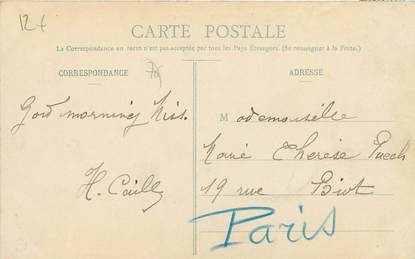 12+
CARTE POSTALE
La Correspondance au recto n'est pas acceptée par tous les Pays Étrangers. (Se renseigner à la Poste.)
CORRESPONDANCE
ADRESSE
Good morning Miss.
H. Cailly
Mademoiselle
Marie Thérèse Puech
19 rue Biot
Paris